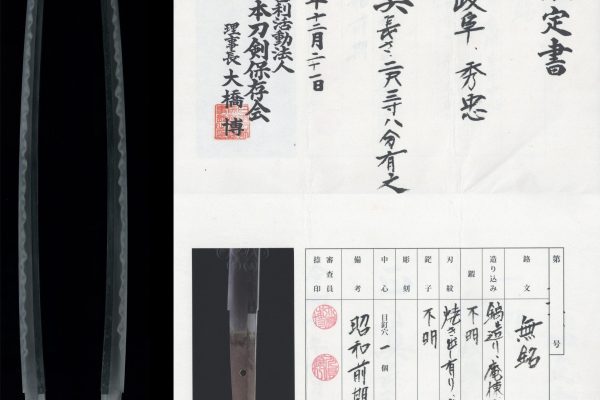 定書
岐阜、秀忠
長さ、二尺三寸八分有之
年十二月二十一日
利活動法人
本刀剣保存会
理事長 大橋 博
第 号
銘文 無銘
造り込み 鎬造り、庵棟、
鍛 不明
刃紋 焼き出し有り、
鋩子 不明
彫刻
中心 目釘穴 一 個
備考 昭和前期
審査員
捺印